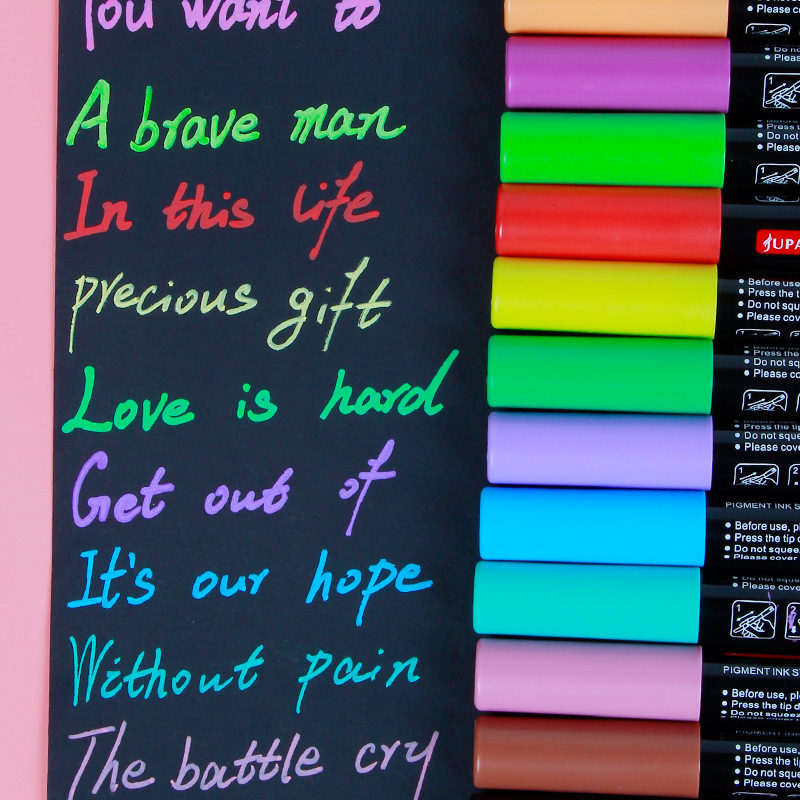 You want to
A brave man
In this life
precious gift
Love is hard
Get out of
It's our hope
Without pain
The battle cry
Please co
Do no
Pleas
1
Press t
Do not
Please
JUPA
Before use,
Press the t
Do not squ
Please cov
Press the
Do not sq
Please co
Press the tip
Do not squ
Please cove
PIGMENT INK S
Before use, pl
Press the tip d
Do not squee
Please cover
Do not squ
Please cove
1 2
PIGMENT INK S
Before use, pl
Press the tip d
Do not squeez
Before use
Press the t
Do not squ